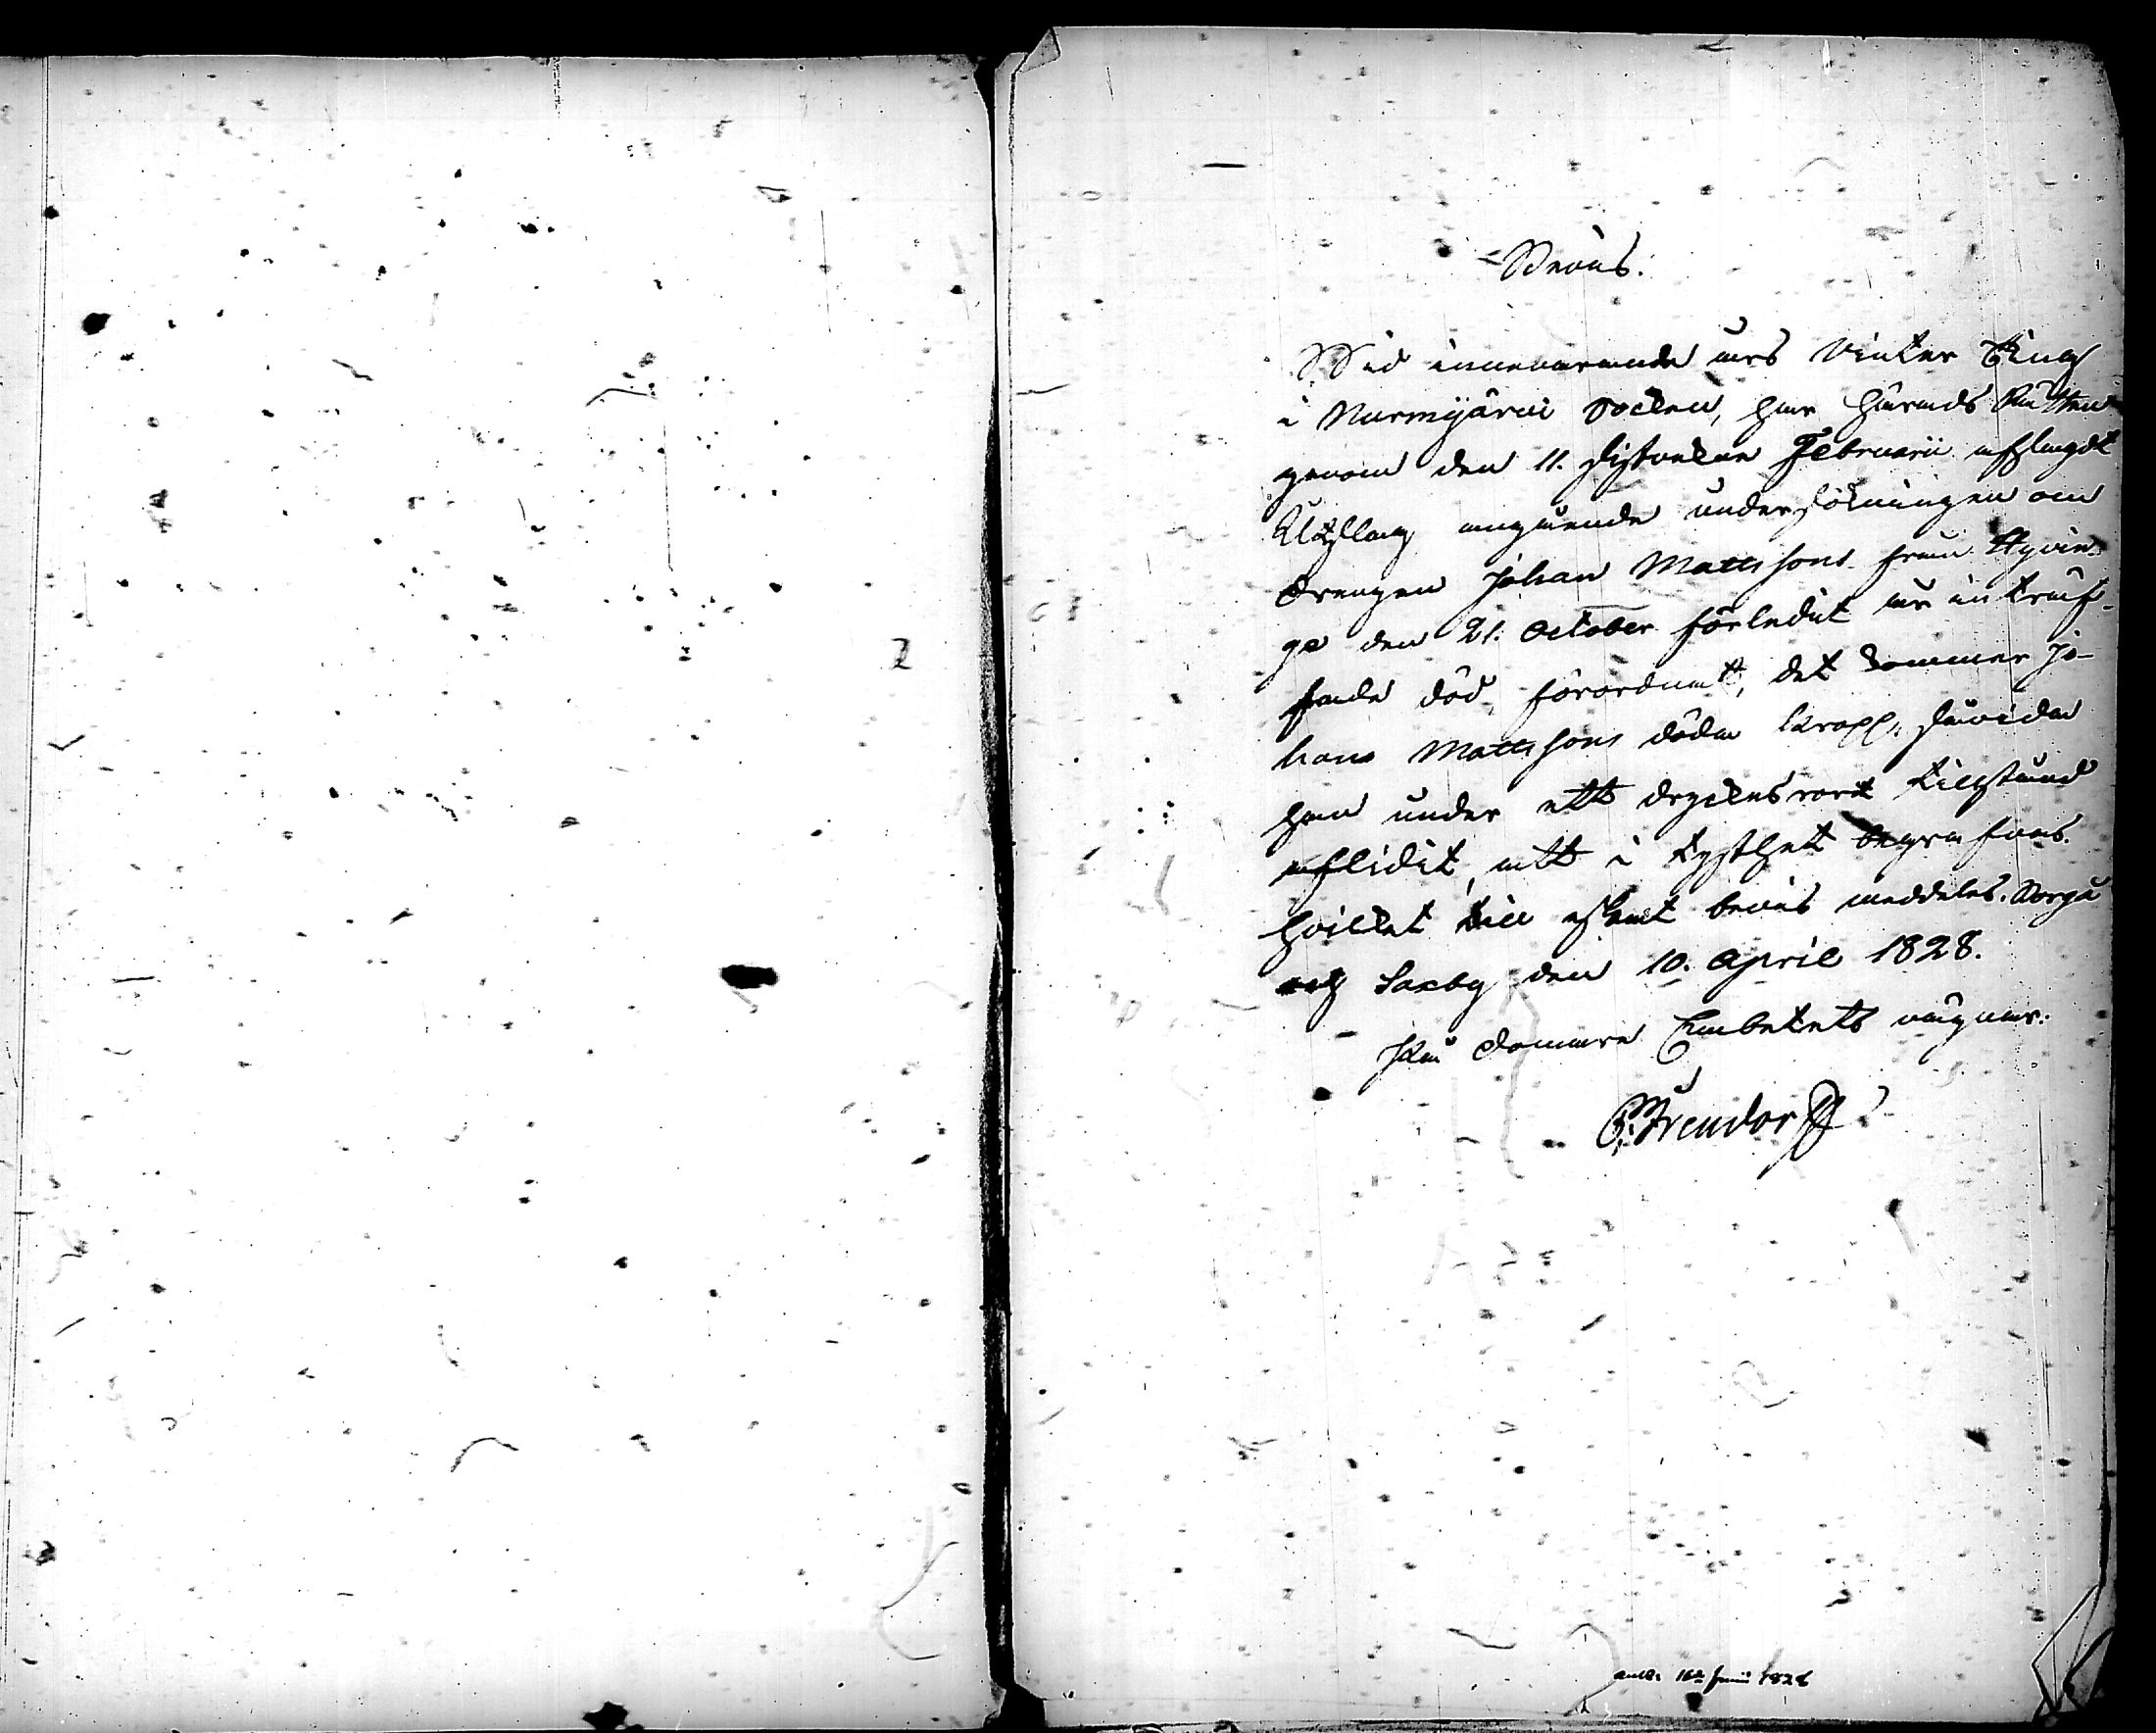 Bevis.
Wid innevarande års Vinter Ting
i Nurmijärvi Socken, har Härads Rätten
genom den 11. sistvekne Februarii afsagdt
Utslag angående undersökningen om
Drengen Johan Mattssons från Hyvin-
ge den 21. October förledit år inträf-
fade död, förordnat, det kommer Jo-
hans Mattssons döda kropp, såvida
han under ett dryckensrort tillstånd
aflidit, att i tysthet begrafvas.
hvilket till eftert bevis meddeles. Borgå
och Saxby den 10. April 1828.
På Domare Embetets vägnar:
Frendorff
2
16de Junii 1828